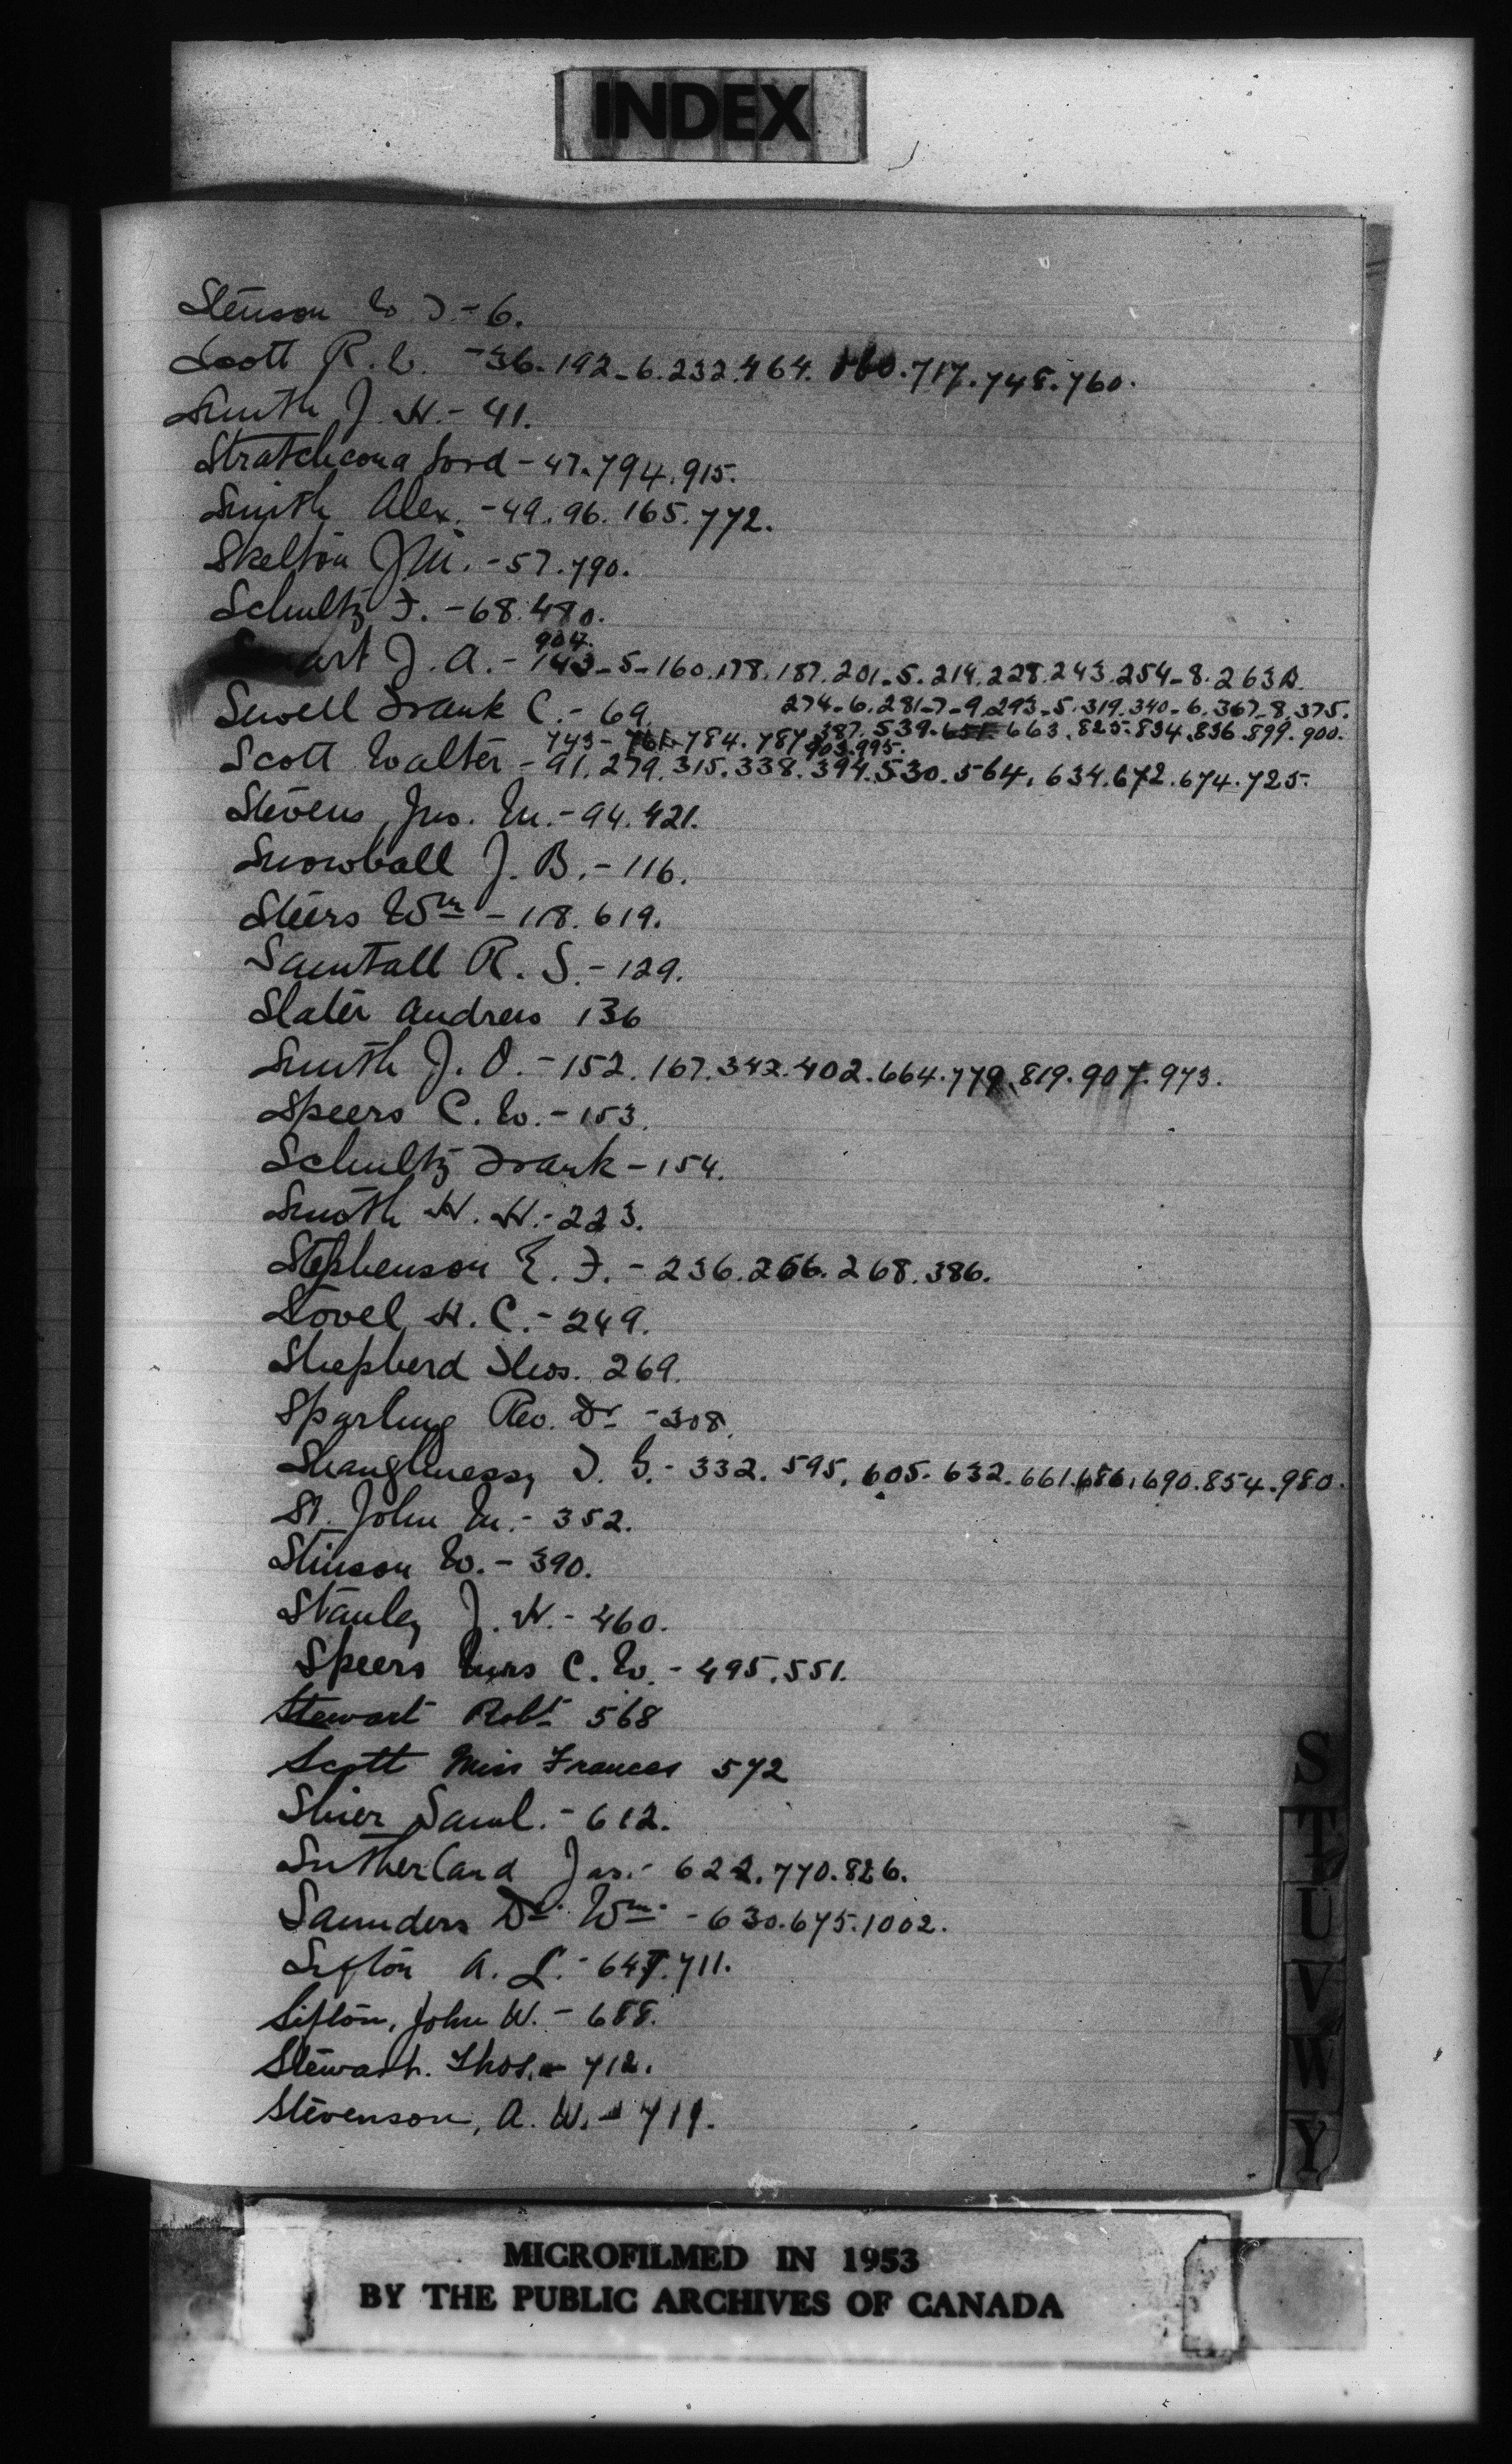 INDEX
Stenson W J - 6.
Scott R. W. - 36. 192-6. 232. 464. 717. 748. 760.
Smith J. H. - 41.
Stratchcona Lord - 47. 794. 915.
Smith Alex. - 49. 96. 165. 772.
Skelton J M. - 57. 790.
Schultz F. - 68. 480.
904.
Smart J. A. - 143-5-160. 178. 187. 201-5. 214. 228. 243. 254-8. 263A.
274-6. 281-7-9. 293-5. 319. 340-6. 367-8. 375.
Sewell Frank C. - 69.
387. 539. 651. 663. 825. 834. 836. 899. 900.
743- 761. 784. 787 903. 995.
Scott Walter - 91. 279. 315. 338. 394. 530. 564. 634. 672. 674. 725.
Stevens, Jno. M. - 94. 421.
Snowball J. B. - 116.
Steers Wm - 118. 619.
Samtall R. S. - 129.
Slater Andrew 136
Smith J. O. - 152. 167. 342. 402. 664. 779. 819. 907. 973.
Speers C. W. - 153.
Schultz Frank - 154.
Smith H. H. - 223.
Stephenson E. F. - 236. 266. 268. 386.
Sovel H. C. - 249.
Shepherd Thos. 269.
Sparling Rev. Dr - 308.
Shaughnessy T. G. - 332. 595. 605. 632. 661. 686. 690. 854. 980.
St. John M. - 352.
Stinson W. - 390.
Stanley J. H. - 460.
Speers Mrs C. W. - 495. 551.
Stewart Robt 568
Scott Miss Frances 572
Shier Saml. - 612.
Sutherland Jas. - 622. 770. 826.
Saunders Dr Wm. - 630. 675. 1002.
Sifton A. L. - 647. 711.
Sifton, John W. - 688.
Stewart. Thos. - 712.
Stevenson, A. W. - 711.
S
T
U
V
W
Y
MICROFILMED IN 1953
BY THE PUBLIC ARCHIVES OF CANADA